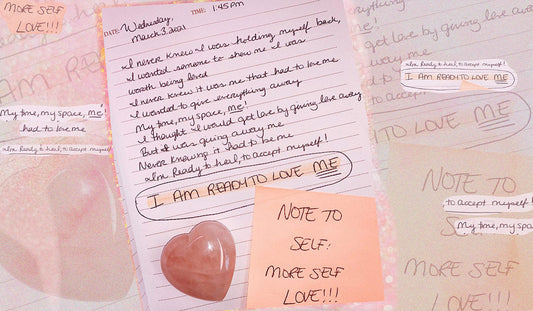 MORE SELF
LOVE!!!
My time, my space, me!
had to love me
I Am Ready to heal, to accept myself!
DATE: Wednesday, TIME: 1:45pm
March 3, 2021
I never knew I was holding myself back,
I wanted someone to show me I was
worth being loved
I never knew it was me that had to love me
I wanted to give everything away
My time, my space, me!
I thought I would get love by giving love away
But I was giving away me
Never knowing it had to be me
I Am Ready to heal, to accept myself!
I AM READY TO LOVE ME
NOTE TO
SELF:
MORE SELF
LOVE!!!
I Am Ready to heal, to accept myself!
I AM READY TO LOVE ME
NOTE TO
to accept myself!
My time, my spac
MORE SELF
LOVE!!!